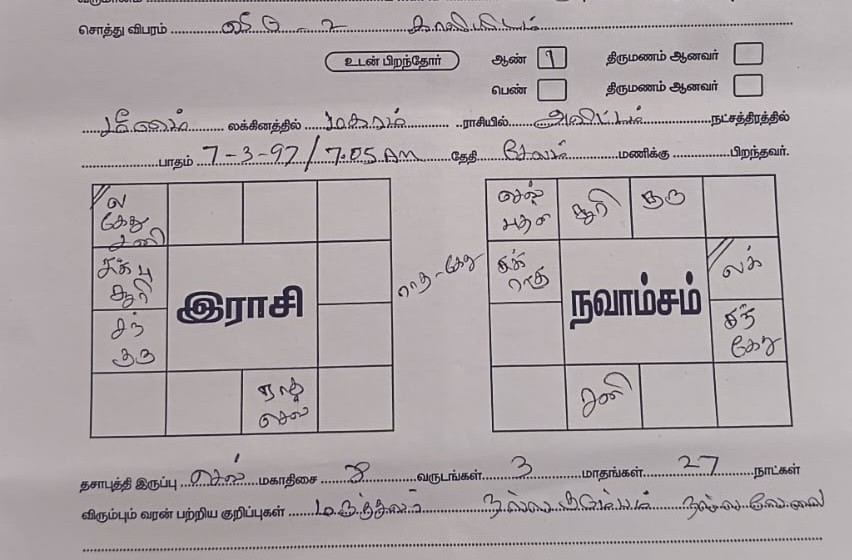 சொத்து விபரம் வீடு - 2
உடன் பிறந்தோர் ஆண் 1 திருமணம் ஆனவர்
பெண் திருமணம் ஆனவர்
மீனம் லக்கினத்தில் மகரம் ராசியில் அவிட்டம் நட்சத்திரத்தில்
பாதம் 7-3-97/7.05 AM தேதி சேலம் மணிக்கு பிறந்தவர்.
ல கேது சனி
சுக் பு சூரி
சந் குரு
ராகு செவ்
இராசி
ராகு-கேது
செவ் புதன் சூரி குரு
சுக் ராகு லக்
நவாம்சம்
சந் கேது
சனி
தசாபுத்தி இருப்பு செவ் மகாதிசை 3 வருடங்கள் 3 மாதங்கள் 27 நாட்கள்
விரும்பும் வரன் பற்றிய குறிப்புகள் நல்ல குடும்பம் நல்ல வேலை